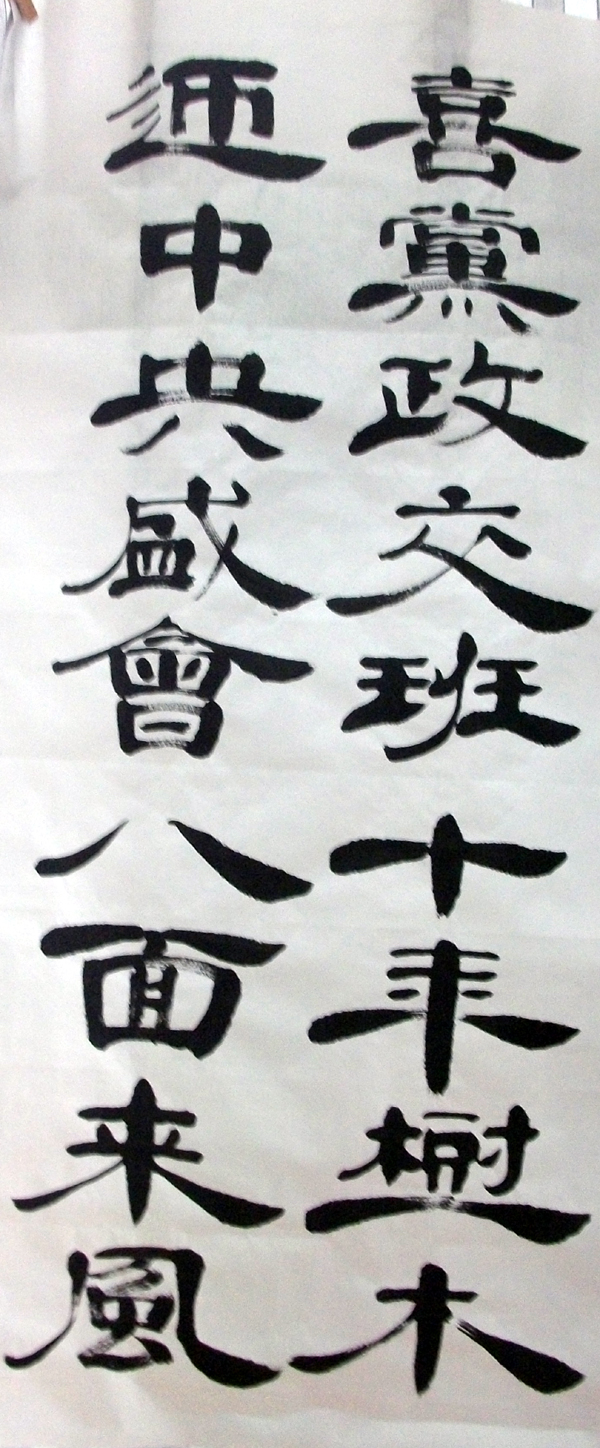 喜黨政交班 十年樹木
迎中央盛會 八面来風